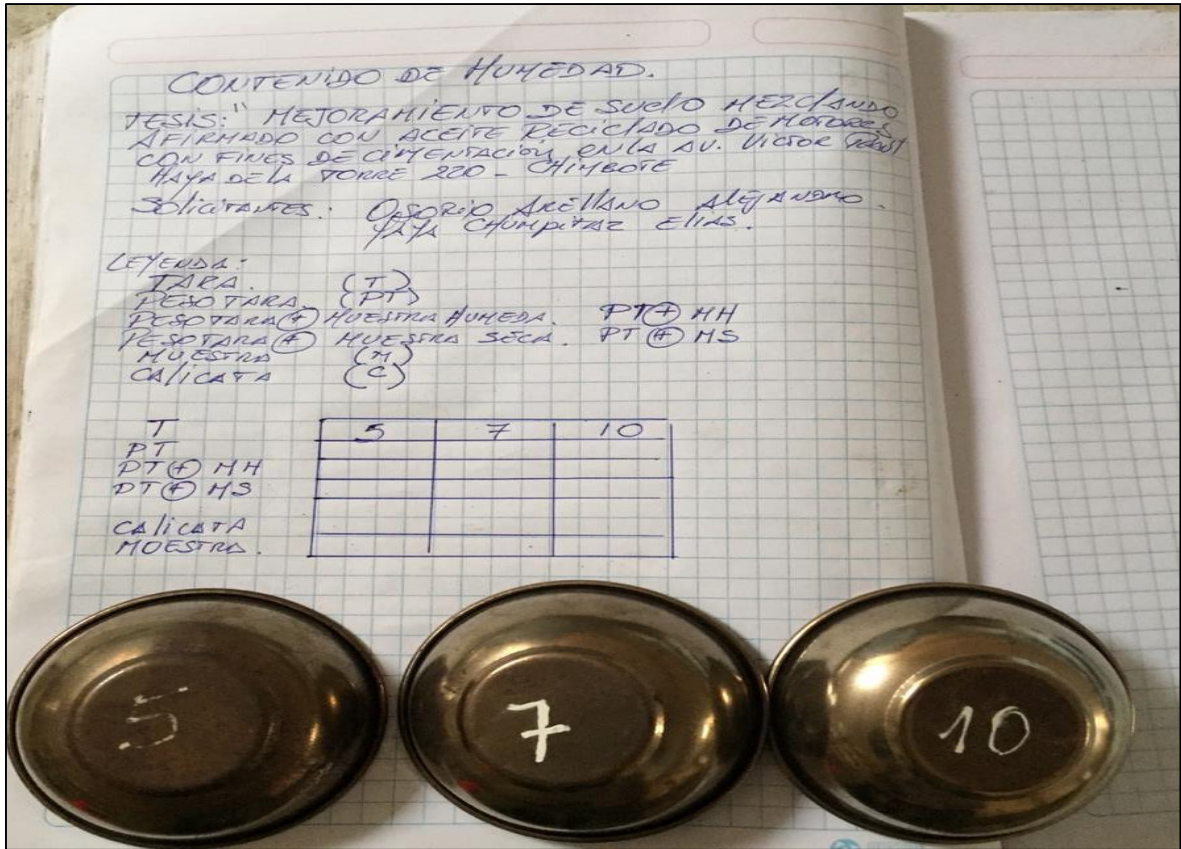 CONTENIDO DE HUMEDAD.
TESIS: " MEJORAMIENTO DE SUELO MEZCLANDO
AFIRMADO CON ACEITE RECICLADO DE MOTORES
CON FINES DE CIMENTACIÓN, EN LA AV. VICTOR RAUL
HAYA DE LA TORRE 220 - CHIMBOTE
SOLICITANTES: OSORIO ARELLANO ALEJANDRO.
CHUMPITAZ ELIAS.
LEYENDA:
TARA. (T)
PESO TARA. (PT)
PESO TARA (+) MUESTRA HUMEDA. PT (+) MH
PESO TARA (+) MUESTRA SECA. PT (+) MS
MUESTRA (M)
CALICATA (C)
T 5 7 10
PT
PT (+) MH
PT (+) MS
CALICATA
MUESTRA.
5 7 10